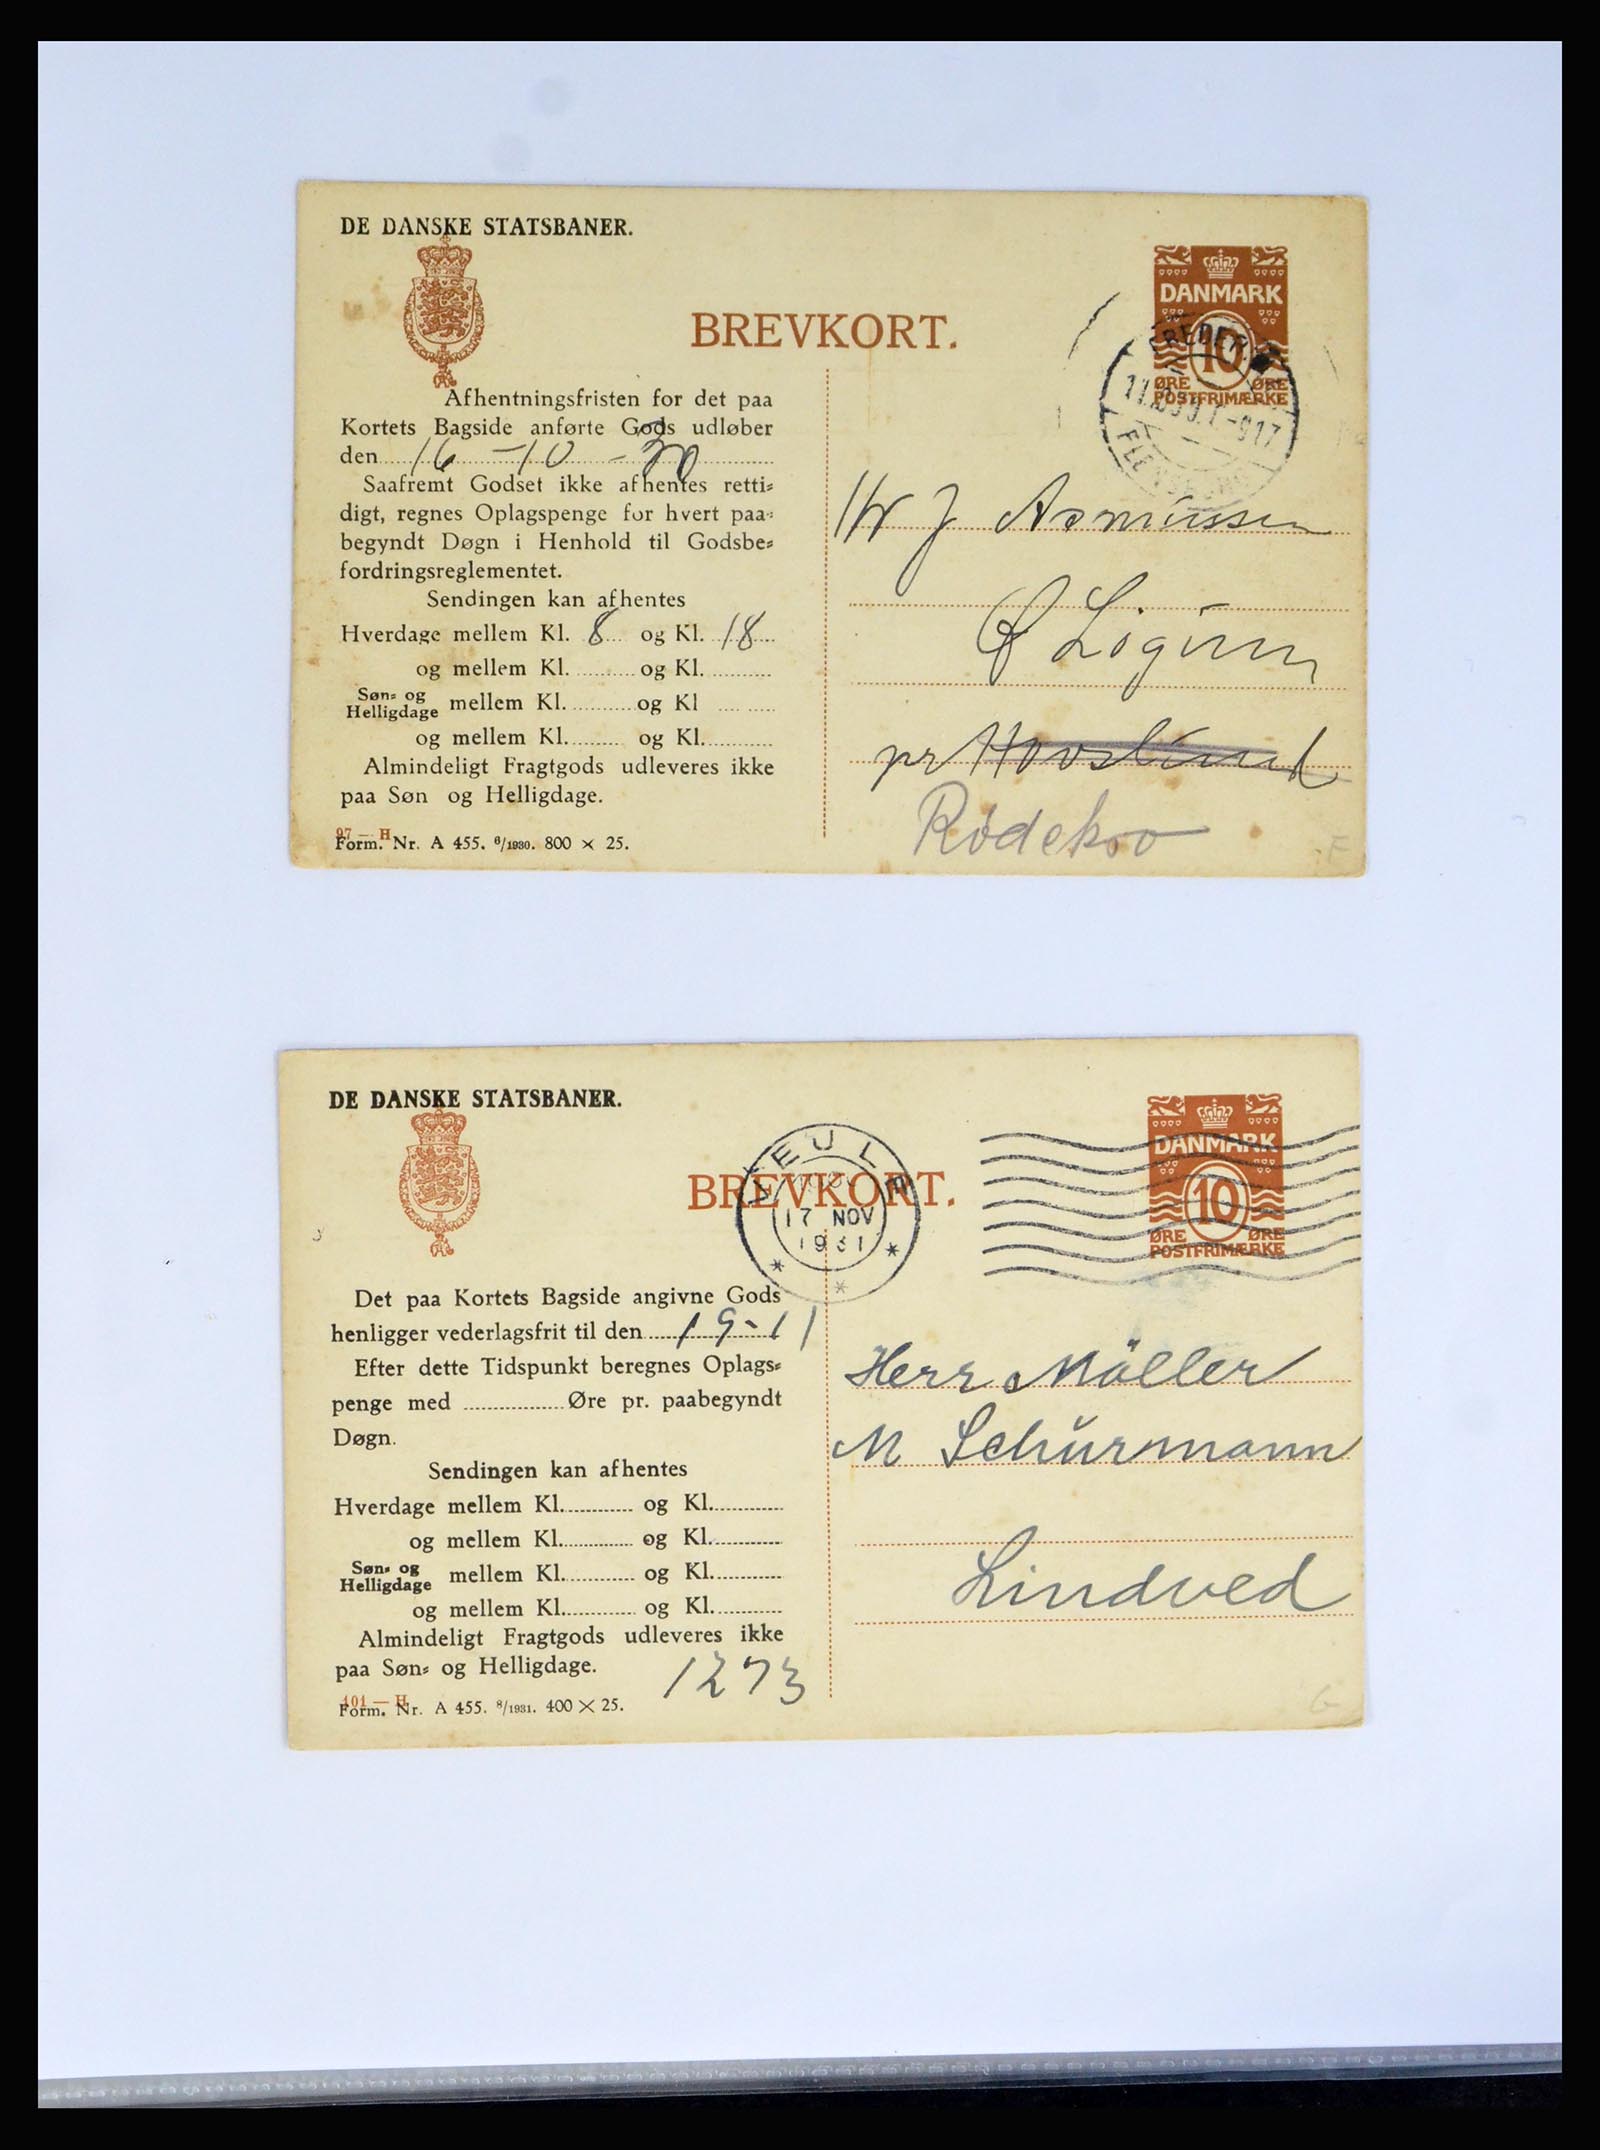 DE DANSKE STATSBANER.
BREVKORT.
DANMARK
10
ØRE ØRE
POSTFRIMÆRKE
Afhentningsfristen for det paa
Kortets Bagside anførte Gods udløber
den 16-10-30
Saafremt Godset ikke afhentes retti=
digt, regnes Oplagspenge for hvert paa=
begyndt Døgn i Henhold til Godsbe=
fordringsreglementet.
Sendingen kan afhentes
Hverdage mellem Kl. 8 og Kl. 18
og mellem Kl. og Kl.
Søn= og
Helligdage mellem Kl. og Kl
og mellem Kl. og Kl.
Almindeligt Fragtgods udleveres ikke
paa Søn og Helligdage.
97 — H
Form. Nr. A 455. 6/1930. 800 × 25.
Hr J Asmussen
Ø Løgum
pr Hovslund
Rødekro
F
DE DANSKE STATSBANER.
BREVKORT.
VEJLE
17 NOV
1931
DANMARK
10
ØRE ØRE
POSTFRIMÆRKE
Det paa Kortets Bagside angivne Gods
henligger vederlagsfrit til den 19-11
Efter dette Tidspunkt beregnes Oplags=
penge med Øre pr. paabegyndt
Døgn.
Sendingen kan afhentes
Hverdage mellem Kl. og Kl.
og mellem Kl. og Kl.
Søn= og
Helligdage mellem Kl. og Kl.
og mellem Kl. og Kl.
Almindeligt Fragtgods udleveres ikke
paa Søn= og Helligdage.
1273
101 — H
Form. Nr. A 455. 8/1931. 400 × 25.
Herr Möller
M Schürmann
Lindved
G